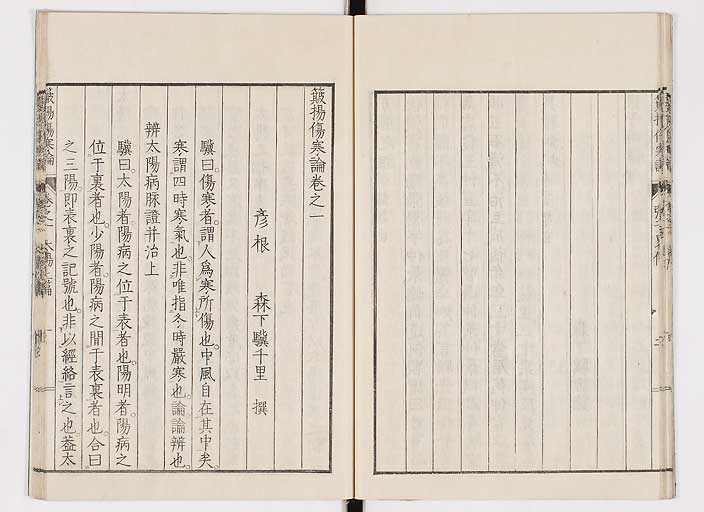 簸揚傷寒論卷之一
彦根 森下驥千里 撰
驥曰。傷寒者。謂人爲寒所傷也。中風自在其中矣。
寒謂四時寒氣也。非唯指冬時嚴寒也。論論辨也。
辨太陽病脉證并治上
驥曰。太陽者。陽病之位于表者也。陽明者。陽病之
位于裏者也。少陽者。陽病之間于表裏者也。合曰
之三陽。即表裏之記號也。非以經絡言之也。蓋太
簸揚傷寒論